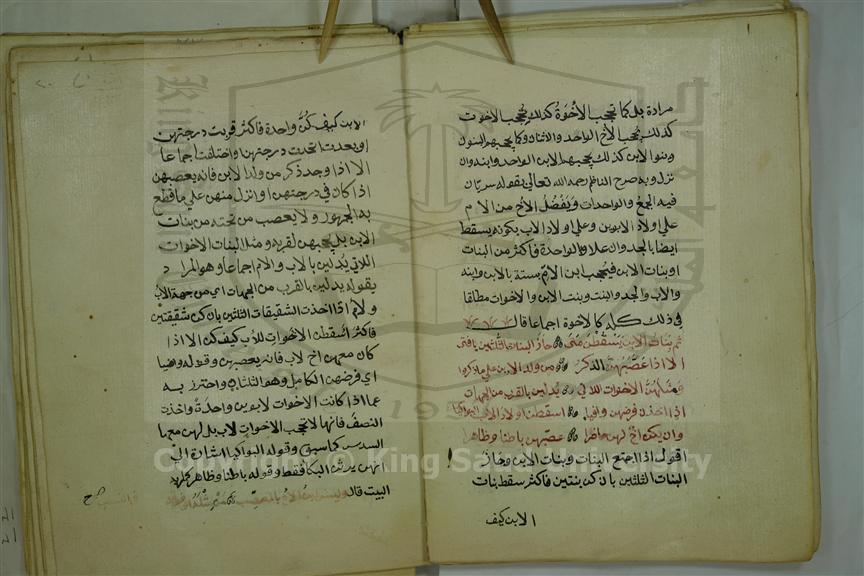 مرادة بل كما تحجب الأخوة كذلك تحجب الاخوات
كذلك يحجب الأخ الواحد والاثنان وكما يحجبهم البنون
وبنوا الابن كذلك يحجبهم الابن الواحد وابنه وان
نزل وبه صرح الناظم رحمه الله تعالى بقوله سيّان
فيه الجمع والواحدات ويفضل الاخ من الام
على ولاد الابوين وعلى ولاد الاب بكونه يسقط
ايضا بالجد وان علا وبالواحدة فأكثر من البنات
او بنات الابن فيحجب ابن الام ستة بالابن وابنه
والاب والجد والبنت وبنت الابن والاخوات مطلقا
في ذلك كله كالاخوة اجماعا قال
ثم بنات الابن يسقطن متى حاز البنات الثلثين يا فتى
الا اذا عصبهن الذكر من ولد الابن على ما ذكروا
ومثلهن الاخوات اللاتي يدلين بالقرب من الجهات
اذا اخذن فرضهن وافيا اسقطن اولاد الاب البواكيا
وان يكن اخ لهن حاضرا عصبهن باطنا وظاهرا
اقول اذا اجتمع البنات وبنات الابن وحاز
البنات الثلثين بان كن بنتين فأكثر سقط بنات
الابن كيف
الابن كيف كنّ واحدة فاكثر قربت درجتهن
او بعدت اتحدت درجتهن واختلفت اجماعا
الا اذا وجد ذكر من ولد الابن فانه يعصبهن
اذا كان في درجتهن او انزل منهن على ما قطع
به الجمهور ولا يعصب من تحته من بنات
الابن بل يحجبهن لقربه ومثل البنات الاخوات
اللاتي يدلين بالاب والام اجماعا وهو المراد
بقوله يدلين بالقرب من الجهات اي من جهة الأب
والام اذا اخذت الشقيقات الثلثين بان كن شقيقتين
فاكثر اسقطن الاخوات للاب كيف كن الا اذا
كان معهن اخ لاب فانه يعصبهن وقوله وافيا
اي فرضهن الكامل وهو الثلثان واحترز به
عما اذا كانت الاخوات لابوين واحدة واخذت
النصف فانها لا تحجب الاخوات لاب بل لهن معها
السدس كما سبق وقوله البواكيا اشارة الى
انهن يرثن البكا فقط وقوله باطنا وظاهرا
البيت قال وليس ابن الاخ بالمعصب